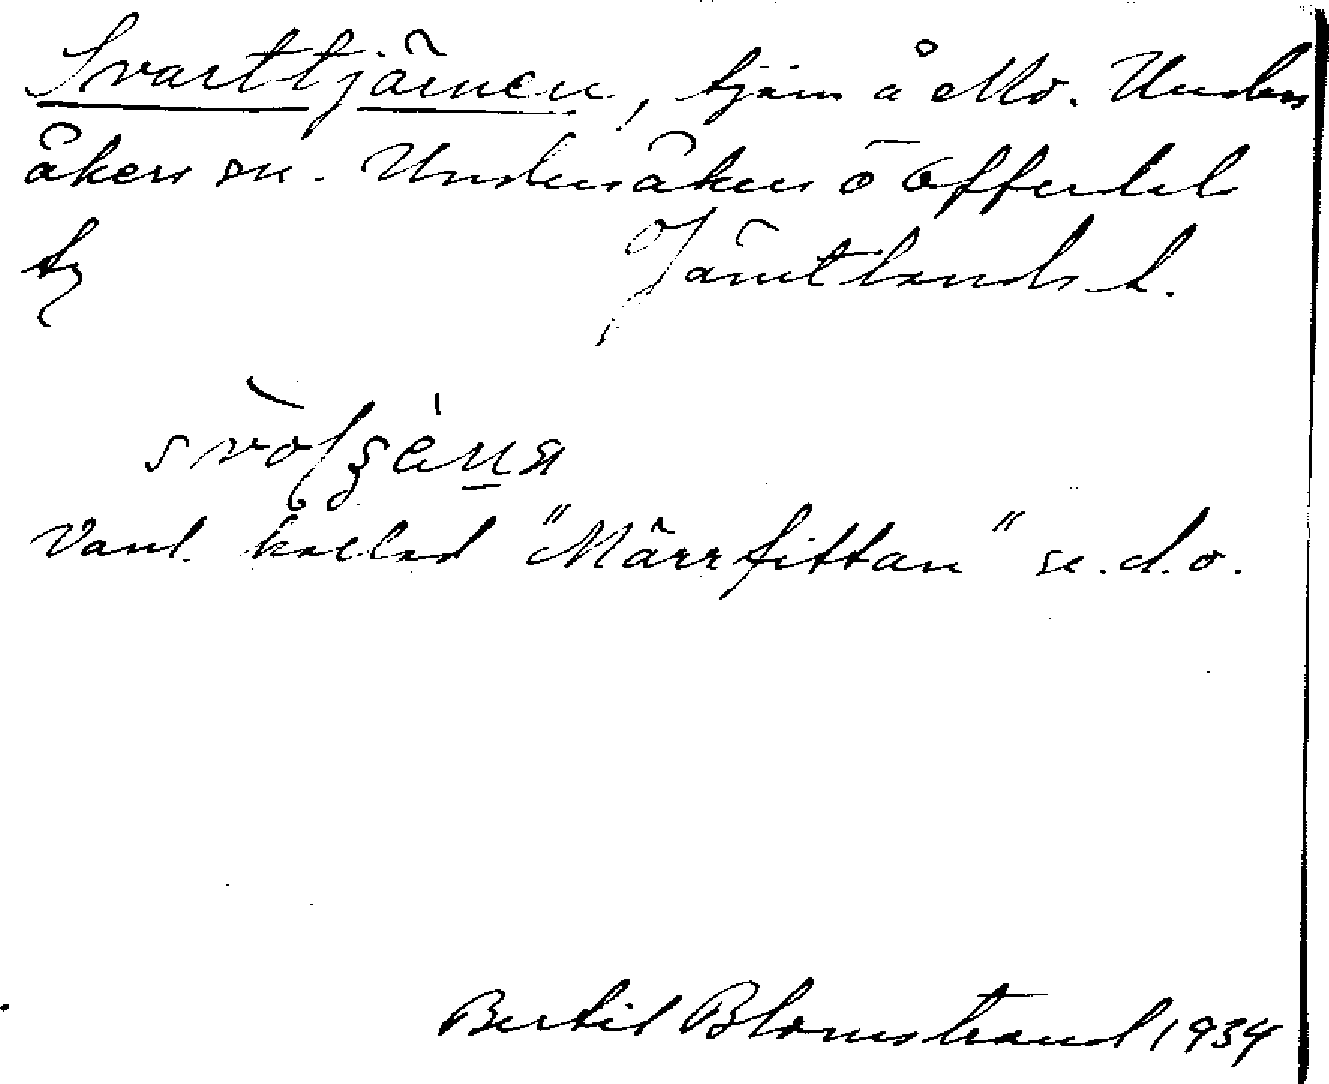 Svarttjärnen, tjärn å Mo. Unders
åkers sn. Undersåkers o Offerdals
tg Jämtlands l.
Vanl. kallad "Märrfittan" se. d. o.
Bertil Blomstrand 1934